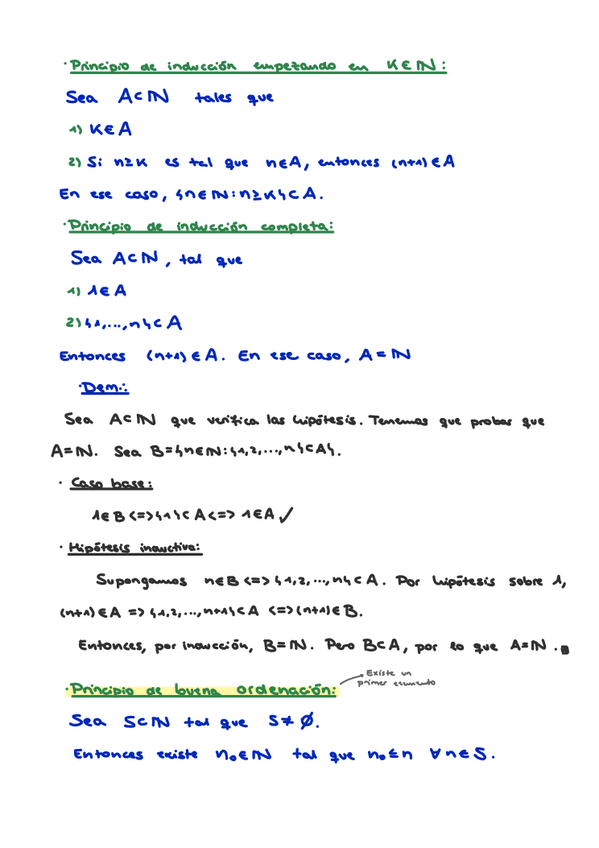 · Principio de inducción empezando en K∈ℕ:
Sea A⊂ℕ tales que
1) K∈A
2) Si n≥K es tal que n∈A, entonces (n+1)∈A
En ese caso, {n∈ℕ: n≥K}⊂A.
· Principio de inducción completa:
Sea A⊂ℕ, tal que
1) 1∈A
2) {1,...,n}⊂A
Entonces (n+1)∈A. En ese caso, A=ℕ
· Dem.:
Sea A⊂ℕ que verifica las hipótesis. Tenemos que probar que
A=ℕ. Sea B={n∈ℕ:{1,2,...,n}⊂A}.
· Caso base:
1∈B <=> {1}⊂A <=> 1∈A ✓
· Hipótesis inductiva:
Supongamos n∈B <=> {1,2,...,n}⊂A. Por hipótesis sobre 1,
(n+1)∈A => {1,2,...,n+1}⊂A <=> (n+1)∈B.
Entonces, por inducción, B=ℕ. Pero B⊂A, por lo que A=ℕ.
· Principio de buena ordenación:
Existe un
primer elemento
Sea S⊂ℕ tal que S≠∅.
Entonces existe n₀∈ℕ tal que n₀≤n ∀n∈S.